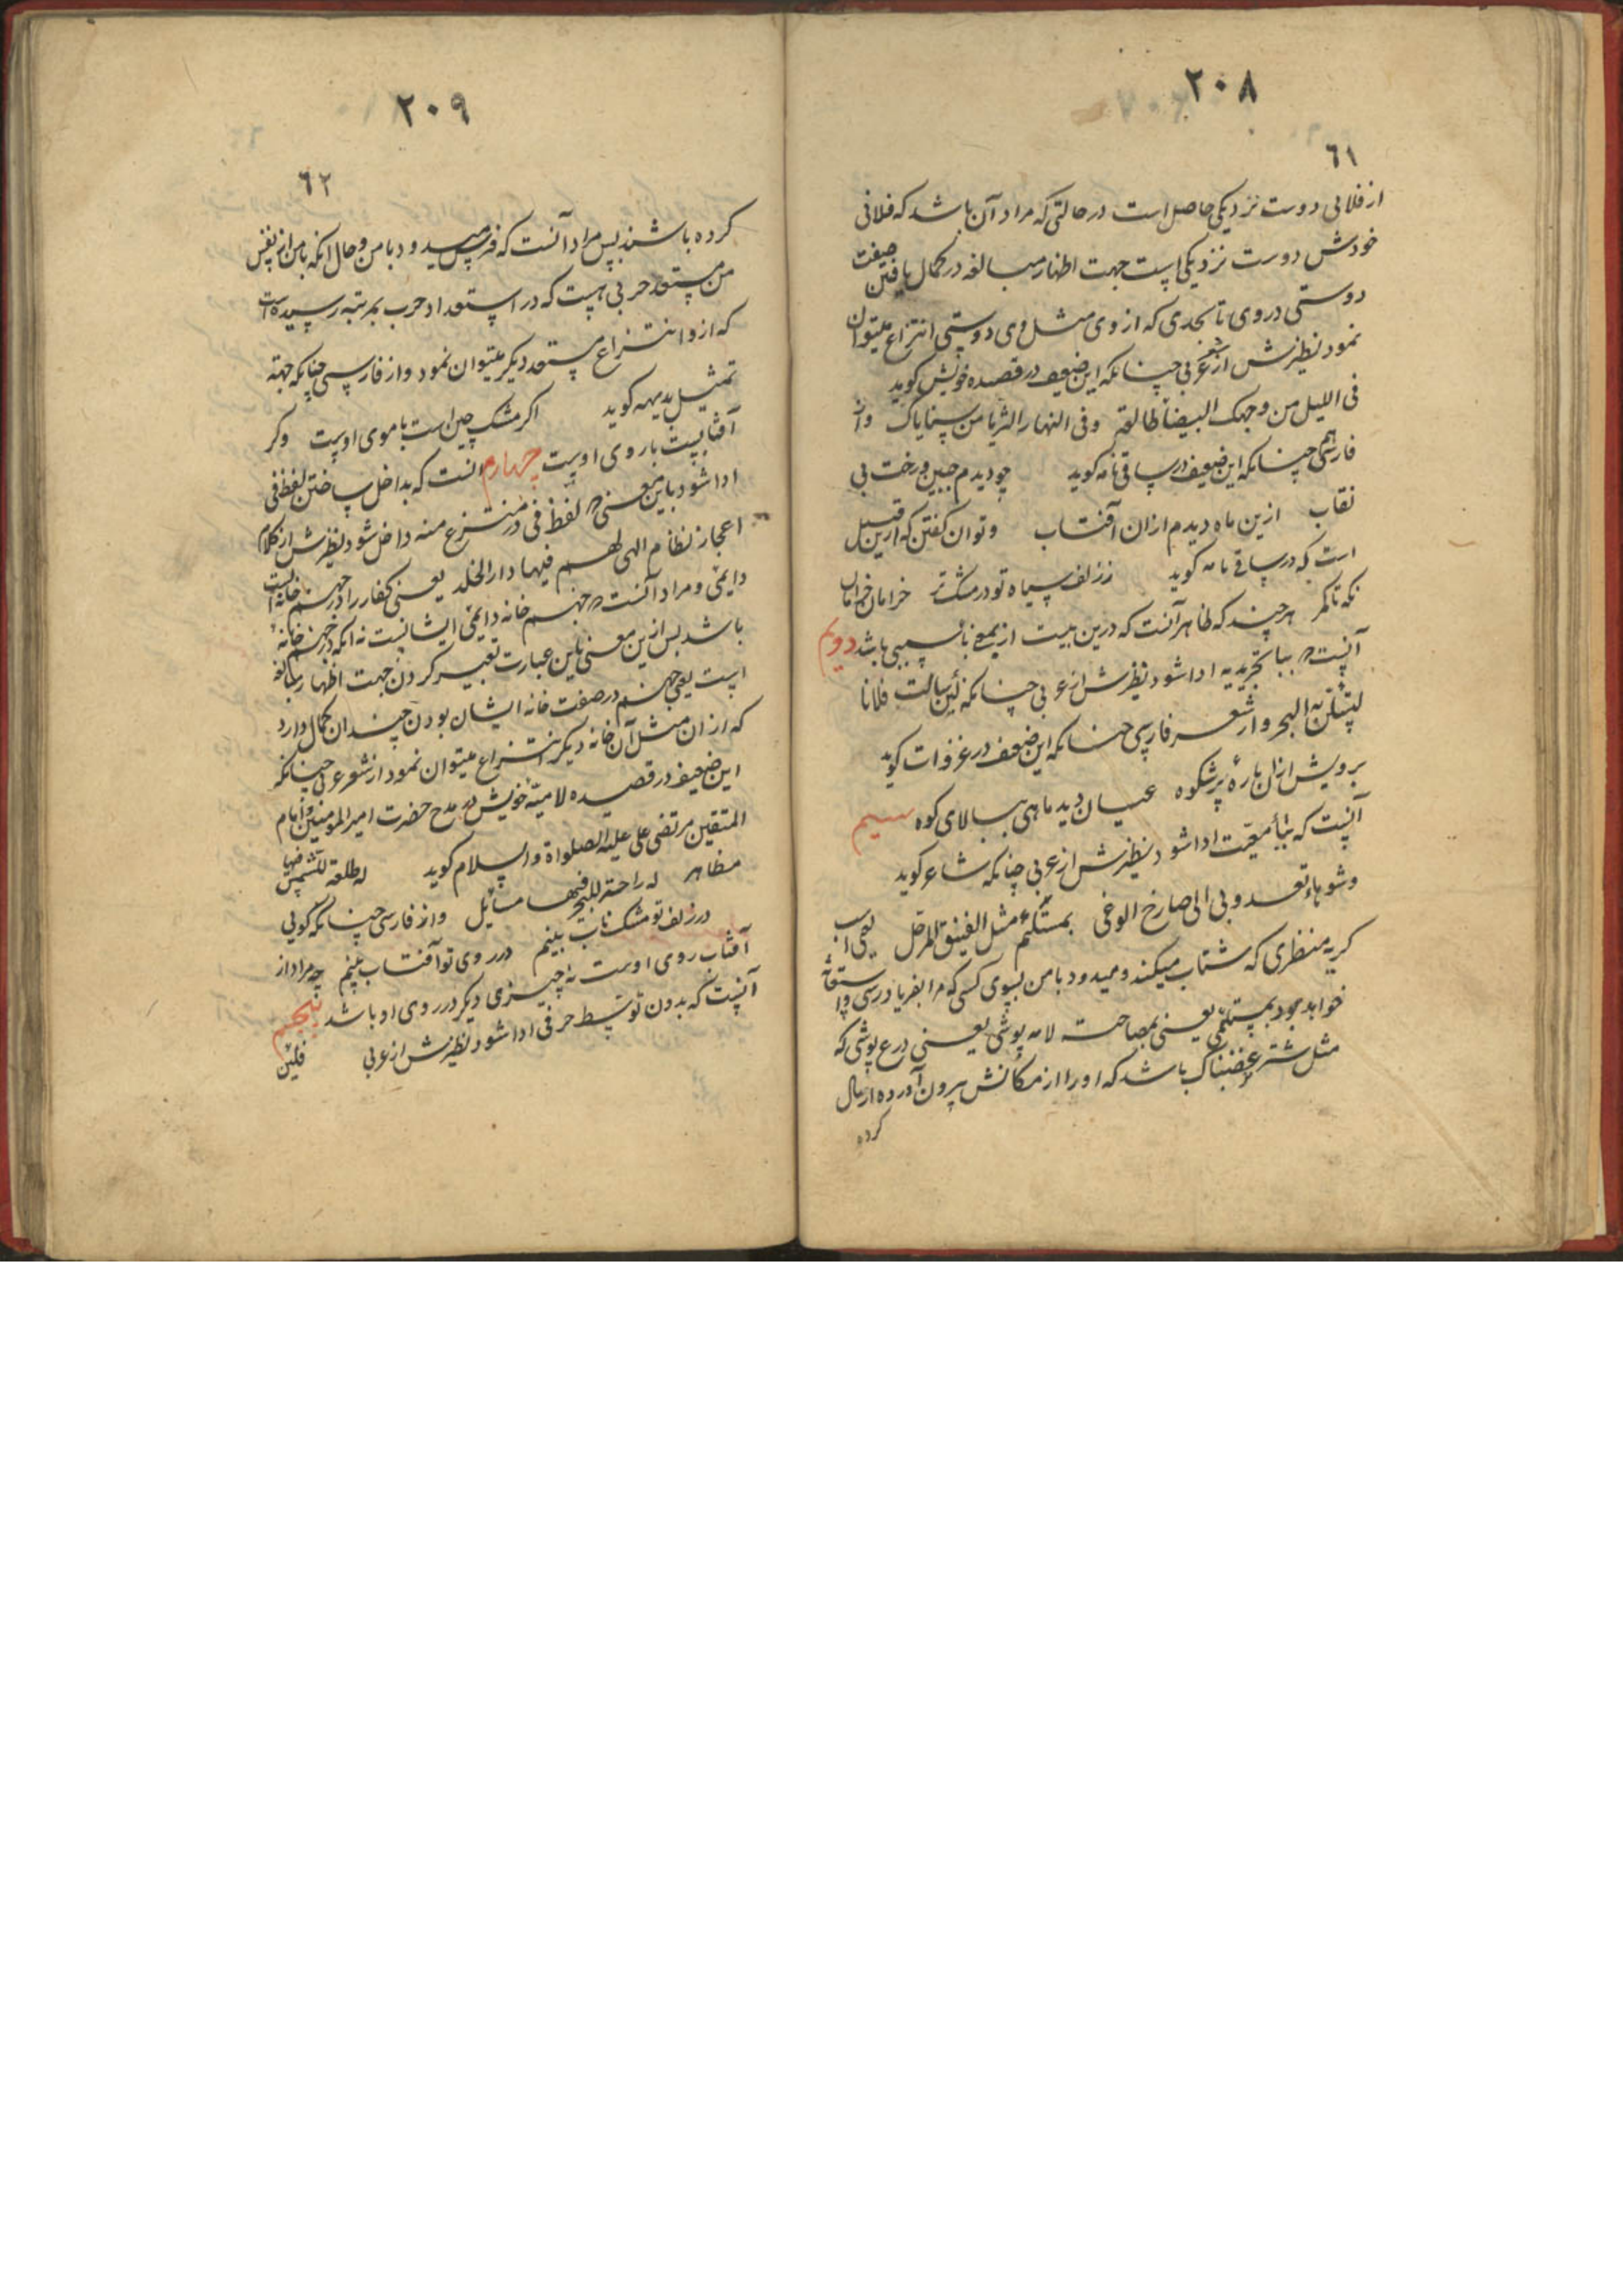 ٢٠٨
٦١
از فلانی دوست نزدیکی حاصل است در حالتی که مراد آن باشد که فلانی
خودش دوست نزدیکی است جهت اظهار مبالغه در کمال یافتن صفت
دوستی در وی تا بحدی که از وی مثل وی دوستی انتزاع میتوان
نمود نظیرش از شعر عربی چنانکه این ضعیف در قصیده خویش کوید
فی اللیل من وجهک البیضا طالعة وفی النهار الثریا من سنایاک واز
فارسی هم چنانکه این ضعیف در ساقی نامه کوید چو دیدم جبین و رخت بی
نقاب ازین ماه دیدم ازان آفتاب وتوان کفتن که ازین قبیل
است که در ساقی نامه کوید ز زلف سیاه تو در مشک تر خرامان خرامان
نکه تا کمر هر چند که ظاهر آنست که درین بیت از بمعنی بای سببی باشد دویم
آنست که ببا تجریدیه ادا شود نظیرش از عربی چنانکه لئن سالت فلانا
لتسئلن به البحر واز شعر فارسی چنانکه این ضعیف در غزوات کوید
برویش ازان بارهٔ پرشکوه عیان دید ماهی ببالای کوه سیم
آنست که ببا معیّت ادا شود نظیرش از عربی چنانکه شاعر کوید
وشوهاء تعدو بی الی صارخ الوغی بمستلئم مثل الفنیق المرحل یعنی اسب
کریه منظری که شتاب میکند ومیدود با من بسوی کسی که مرا بفریاد رسی واستغاثه
خواهد بود بمستلئمی یعنی بمصاحبت لامه پوشی یعنی درع پوشی که
مثل شتر غضبناک باشد که او را از مکانش بیرون آورده ارسال
کرده
٢٠٩
٦٢
کرده باشند پس مراد آنست که فرس میدود با من وحال آنکه با من از نفس
من مستعد حربی هست که در استعداد حرب بمرتبه رسیده است
که ازو انتزاع مستعد دیکر میتوان نمود واز فارسی چنانکه جهة
تمثیل بدیهه کوید اکر مشک چین است با موی اوست وکر
آفتابیست با روی اوست چهارم آنست که بداخل ساختن لفظ فی
ادا شود باین معنی که لفظ فی در منتزع منه داخل شود نظیرش از کلام
اعجاز نظام الهی لهم فیها دار الخلد یعنی کفار را در جهنم خانه ایست
دایمی ومراد آنست که جهنم خانه دایمی ایشانست نه آنکه در جهنم خانهٔ
باشد پس ازین معنی باین عبارت تعبیر کردن جهت اظهار مبالغه
است یعنی جهنم در صفت خانه ایشان بودن چندان کمال دارد
که ازان مثل آن خانه دیکر انتزاع میتوان نمود از شعر عربی چنانکه
این ضعیف در قصیده لامیه خویش در مدح حضرت امیر المومنین وامام
المتقین مرتضی علی علیه الصلواة والسلام کوید له طلعة للشمس فیها
مظاهر له راحة للبحر فیها مسائل واز فارسی چنانکه کویی
در زلف تو مشک ناب بینم در روی تو آفتاب بینم چه مراد از
آفتاب روی اوست نه چیزی دیکر در روی او باشد پنجم
آنست که بدون توسط حرفی ادا شود نظیرش از عربی فلئن